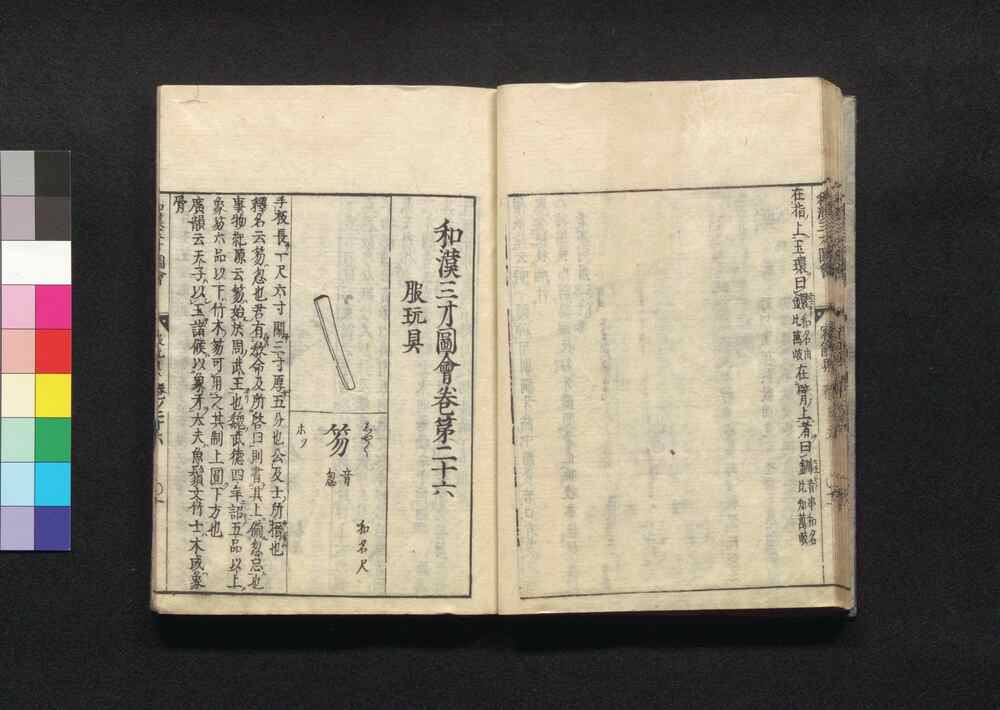 在指上玉環曰鐶在臂上者曰釧
和漢三才圖會卷第二十六
服玩具
しやく
笏
音
忽
ホツ
和名尺
手板長一尺六寸闊三寸厚五分也公及士所搢也
釋名云笏忽也君有敎命及所啓曰則書其上備忽忘也
事物紀源云笏始於周武王也魏武德四年詔五品以上
象笏六品以下竹木笏可用之其制上圓下方也
廣韻云天子以玉諸侯以象牙大夫魚鬚文竹士木或象
骨